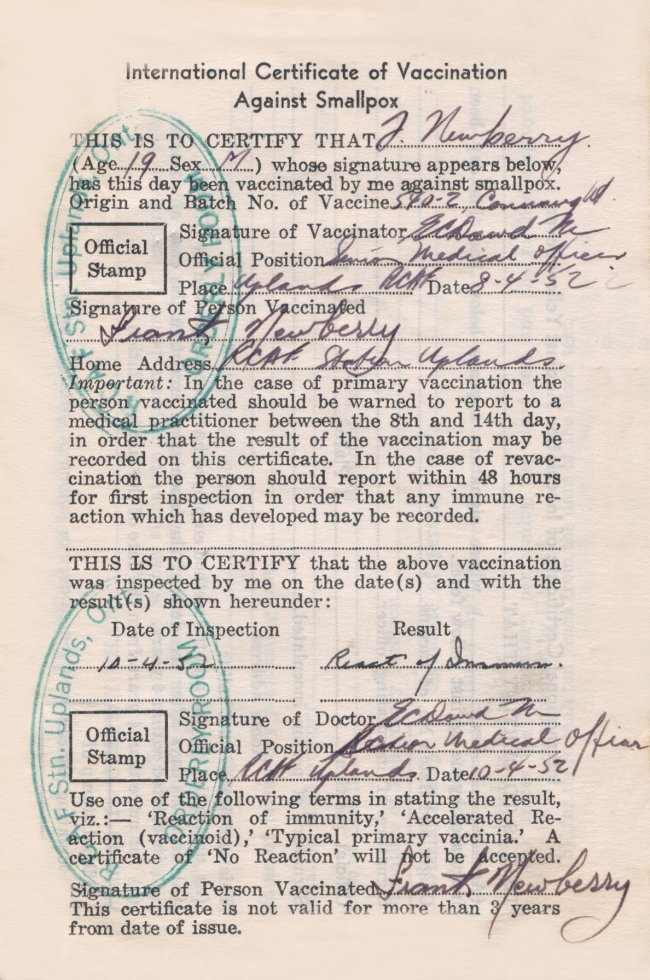 International Certificate of Vaccination
Against Smallpox
THIS IS TO CERTIFY THAT J. Newberry.
(Age 19 Sex M) whose signature appears below,
has this day been vaccinated by me against smallpox.
Origin and Batch No. of Vaccine 540-2 Connaught
Official
Stamp
Signature of Vaccinator
Official Position Senior Medical Officer
Place Uplands RCAF Date 8-4-52
Signature of Person Vaccinated
Frank Newberry
Home Address RCAF Station Uplands.
Important: In the case of primary vaccination the
person vaccinated should be warned to report to a
medical practitioner between the 8th and 14th day,
in order that the result of the vaccination may be
recorded on this certificate. In the case of revac-
cination the person should report within 48 hours
for first inspection in order that any immune re-
action which has developed may be recorded.
THIS IS TO CERTIFY that the above vaccination
was inspected by me on the date(s) and with the
result(s) shown hereunder:
Date of Inspection Result
10-4-52 React of Immun.
Official
Stamp
Signature of Doctor
Official Position Medical Officer
Place RCAF Uplands Date 10-4-52
Use one of the following terms in stating the result,
viz.:— 'Reaction of immunity,' 'Accelerated Re-
action (vaccinoid),' 'Typical primary vaccinia.' A
certificate of 'No Reaction' will not be accepted.
Signature of Person Vaccinated Frank Newberry
This certificate is not valid for more than 3 years
from date of issue.
R.C.A.F Stn. Uplands, Ont.
ORDERLY ROOM
R.C.A.F Stn. Uplands, Ont.
ORDERLY ROOM